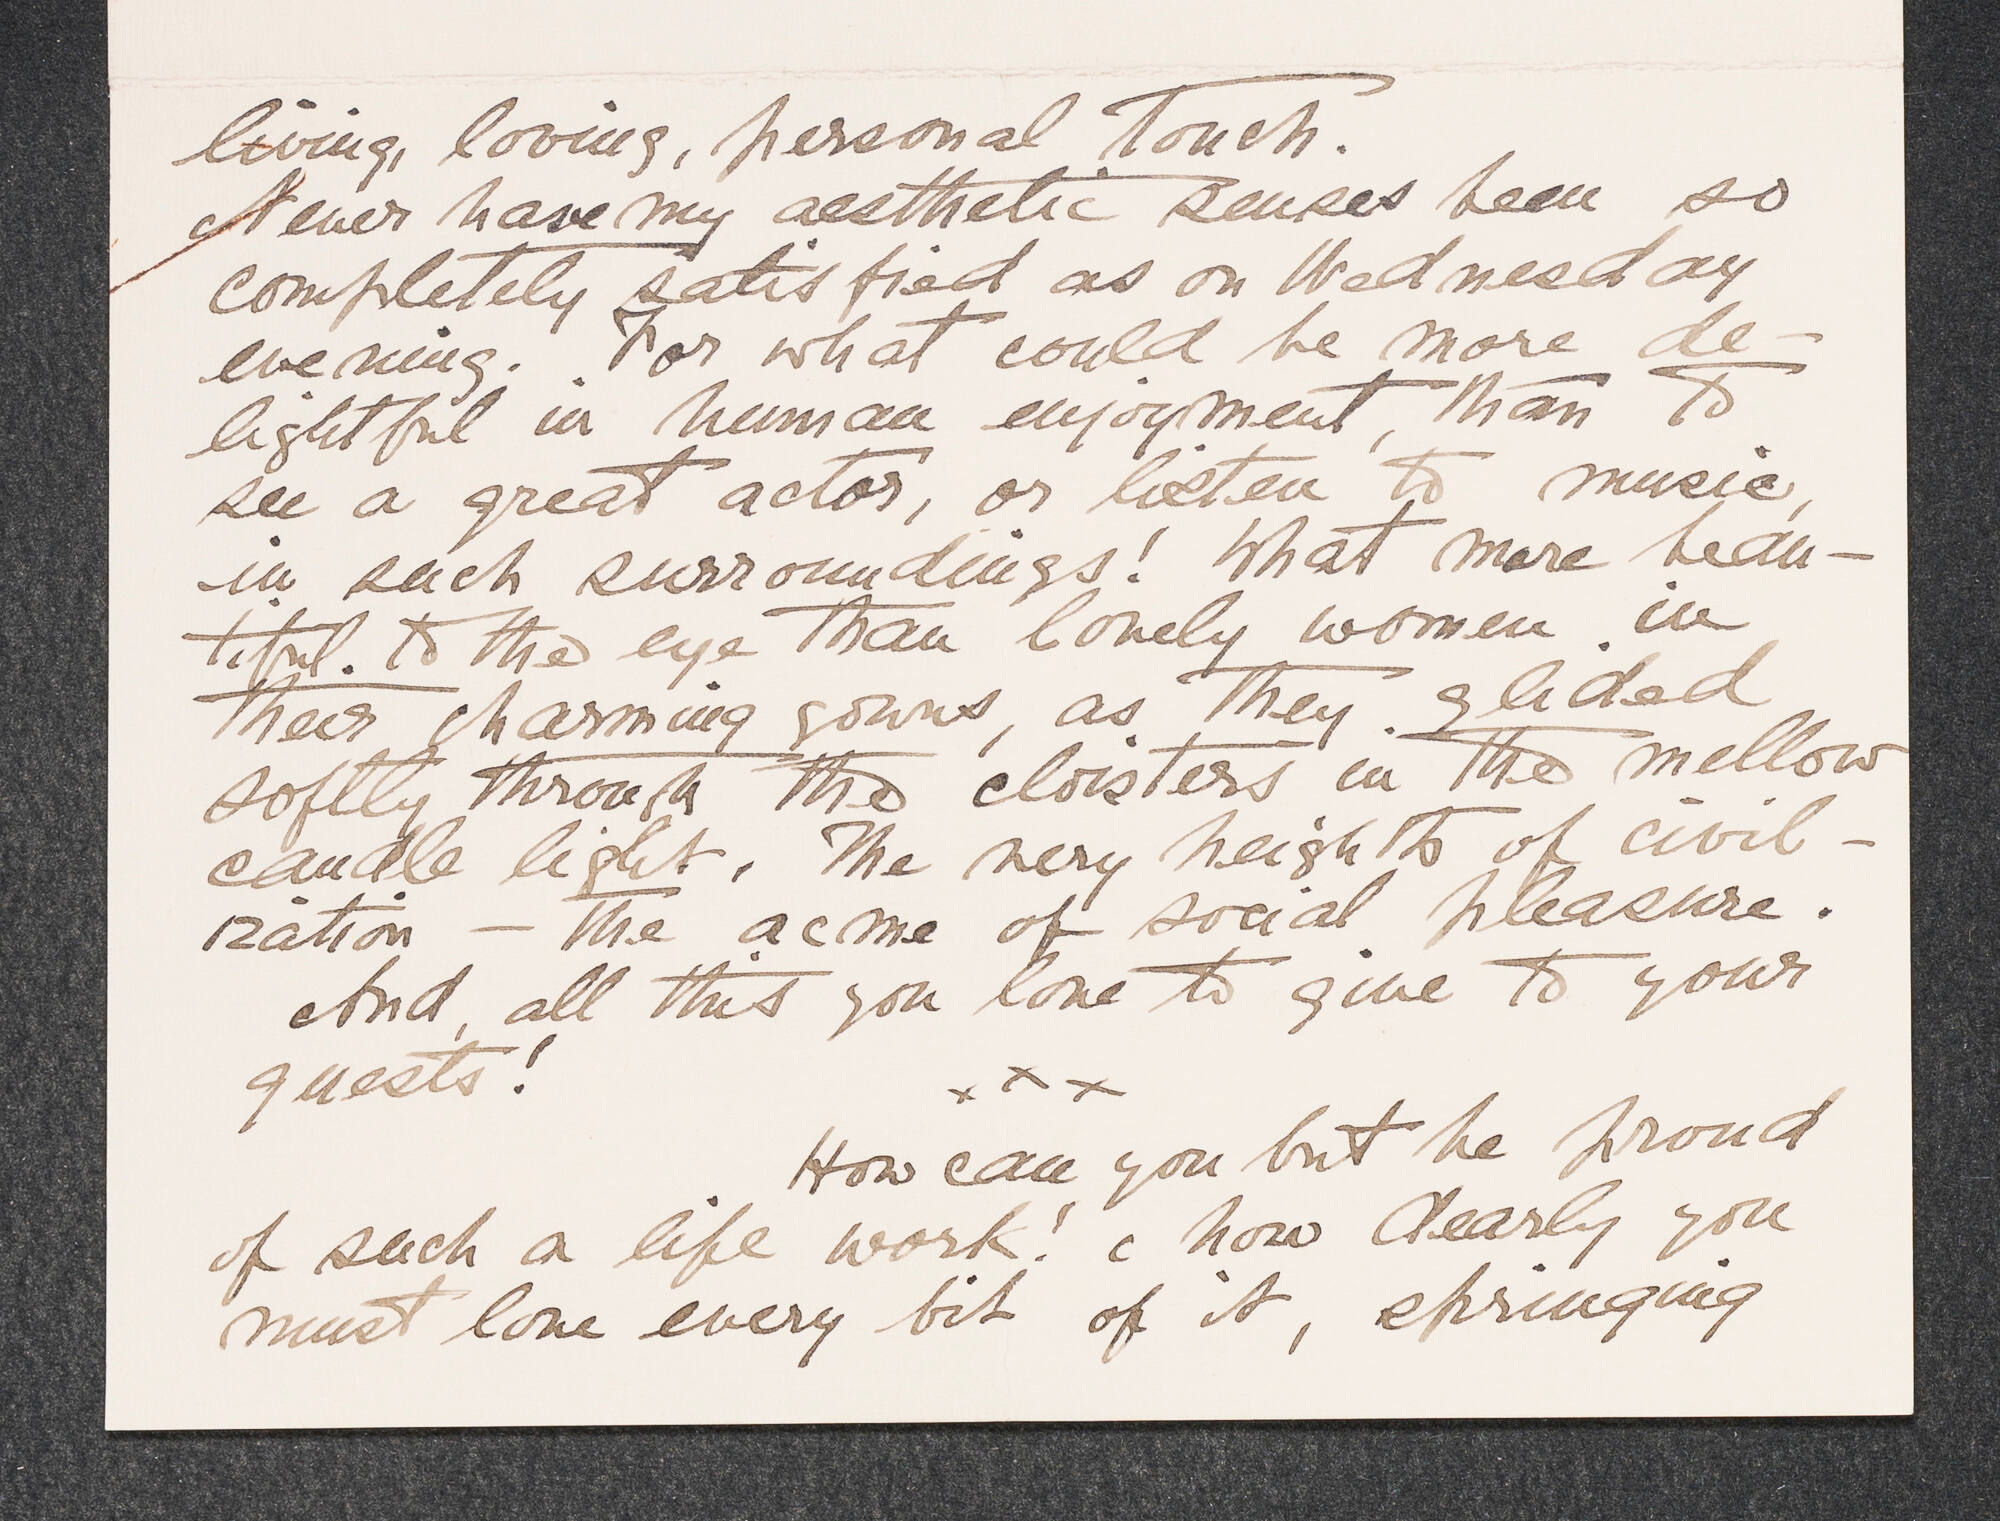 living, loving, personal touch.
Never have my aesthetic senses been so
completely satisfied as on Wednesday
evening. For what could be more de-
lightful in human enjoyment, than to
see a great actor, or listen to music,
in such surroundings! What more beau-
tiful. to the eye than lovely women in
their charming gowns, as they glided
softly through the cloisters in the mellow
candle light. The very heights of civil-
ization - the acme of social pleasure.
And, all this you love to give to your
guests!
x x x
How can you but be proud
of such a life work! & how dearly you
must love every bit of it, springing